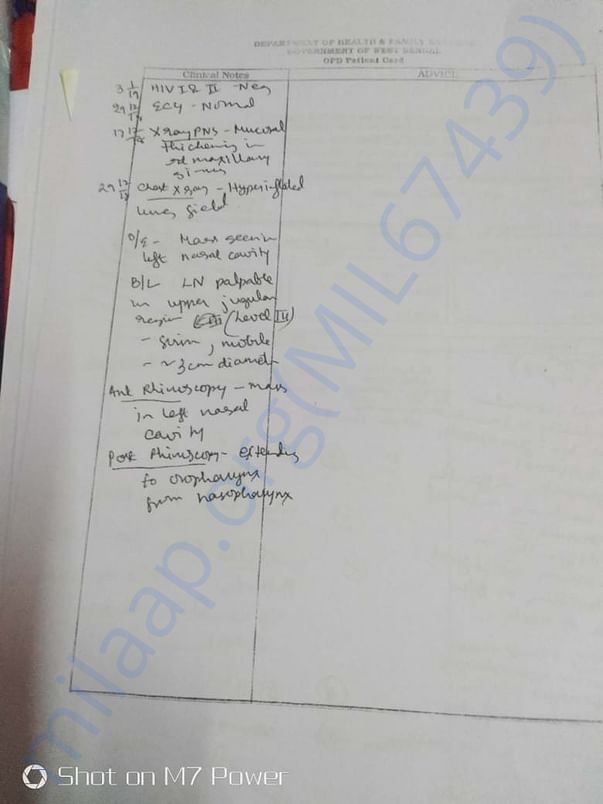 DEPARTMENT OF HEALTH & FAMILY WELFARE
GOVERNMENT OF WEST BENGAL
OPD Patient Card
Clinical Notes
ADVICE
3/1/19 HIV I & II - Neg
29/12/18 ECG - Normal
17/12/18 X ray PNS - Mucosal
thickening in
maxillary
sinus
29/12/18 Chest X ray - Hyperinflated
lung field
O/E - Mass seen in
left nasal cavity
B/L LN palpable
in upper jugular
region (Level II)
- firm, mobile
- ~ 3cm diameter
Ant Rhinoscopy - mass
in left nasal
cavity
Post Rhinoscopy - extending
to oropharynx
from nasopharynx
milaap.org(MIL67439)
Shot on M7 Power